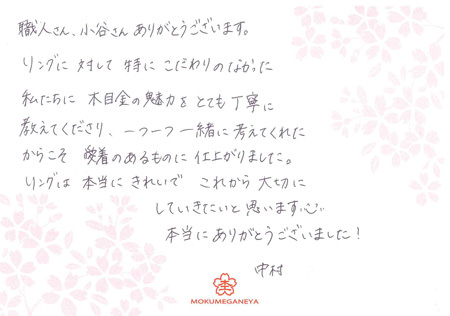 職人さん、小谷さん ありがとうございます。
リングに 対して 特に こだわりのなかった
私たちに 木目金の魅力を とても丁寧に
教えてくださり、一つ一つ 一緒に 考えてくれた
からこそ 愛着のあるものに 仕上がりました。
リングは 本当に きれいで これから 大切に
していきたいと 思います
本当に ありがとうございました！
中村
MOKUMEGANEYA